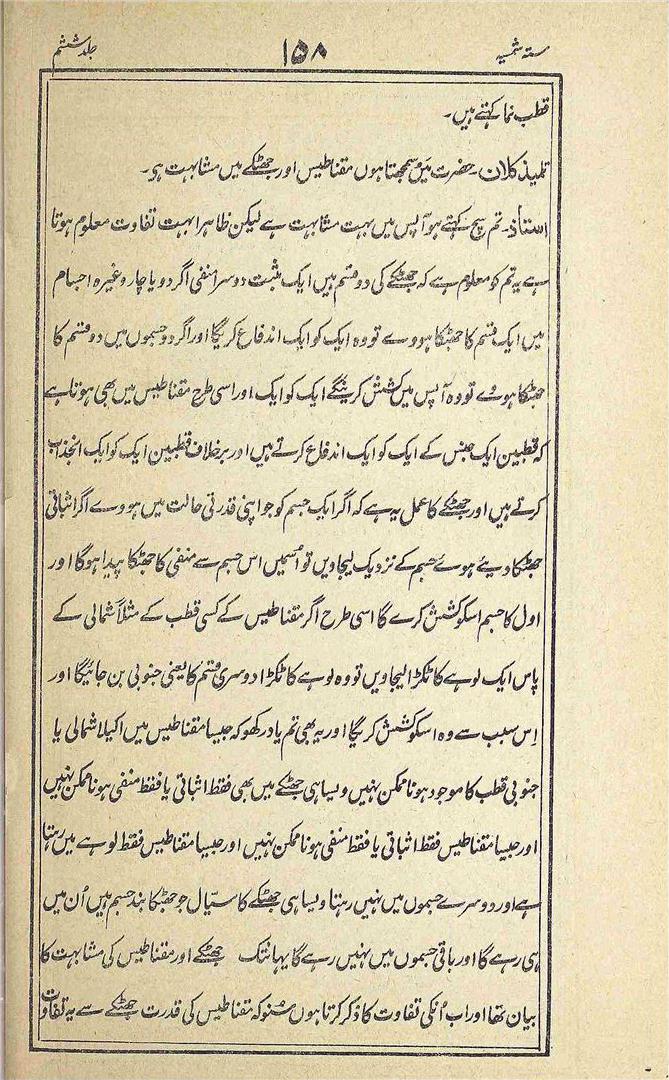 ستہ شمسیہ ۱۵۸ جلد ششم
قطب نما کہتے ہیں۔
تلمیذ کلان۔ حضرت میں سمجھتا ہوں مقناطیس اور جھٹکے میں مشابہت ہی۔
استاذ۔ تم سچ کہتے ہو آپس میں بہت مشابہت ہے لیکن ظاہرا بہت تفاوت معلوم ہوتا
ہے یہ تم کو معلوم ہے کہ جھٹکے کی دو قسم ہیں ایک مثبت دوسرا منفی اگر دو یا چار وغیرہ اجسام
میں ایک قسم کا جھٹکا ہووے تو وہ ایک کو ایک اندفاع کریگا اور اگر دو جسموں میں دو قسم کا
جھٹکا ہووے تو وہ آپس میں کشش کرینگے ایک کو ایک اور اسی طرح مقناطیس میں بھی ہوتا ہے
کہ قطبین ایک جنس کے ایک کو ایک اندفاع کرتے ہیں اور برخلاف قطبین ایک کو ایک انجذاب
کرتے ہیں اور جھٹکے کا عمل یہ ہے کہ اگر ایک جسم کو جو اپنی قدرتی حالت میں ہووے اگر اثباتی
جھٹکا دیئے ہوئے جسم کے نزدیک لیجاویں تو اسمیں اس جسم سے منفی کا جھٹکا پیدا ہوگا اور
اول کا جسم اسکو کشش کرے گا اسی طرح اگر مقناطیس کے کسی قطب کے مثلاً شمالی کے
پاس ایک لوہے کا ٹکڑا لیجاویں تو وہ لوہے کا ٹکڑا دوسری قسم کا یعنی جنوبی بن جائیگا اور
اِس سبب سے وہ اسکو کشش کریگا اور یہ بھی تم یاد رکھو کہ جیسا مقناطیس میں اکیلا شمالی یا
جنوبی قطب کا موجود ہونا ممکن نہیں ویسا ہی جھٹکے میں بھی فقط اثباتی یا فقط منفی ہونا ممکن نہیں
اور جیسا مقناطیس فقط اثباتی یا فقط منفی ہونا ممکن نہیں اور جیسا مقناطیس فقط لوہے میں رہتا
ہے اور دوسرے جسموں میں نہیں رہتا ویسا ہی جھٹکے کا سیّال جو جھٹکا بند جسم ہیں اُن میں
ہی رہے گا اور باقی جسموں میں نہیں رہے گا یہانتک جھٹکے اور مقناطیس کی مشابہت کا
بیان تھا اور اب اُنکی تفاوت کا ذکر کرتا ہوں سُنو کہ مقناطیس کی قدرت جھٹکے سے یہ تفاوت